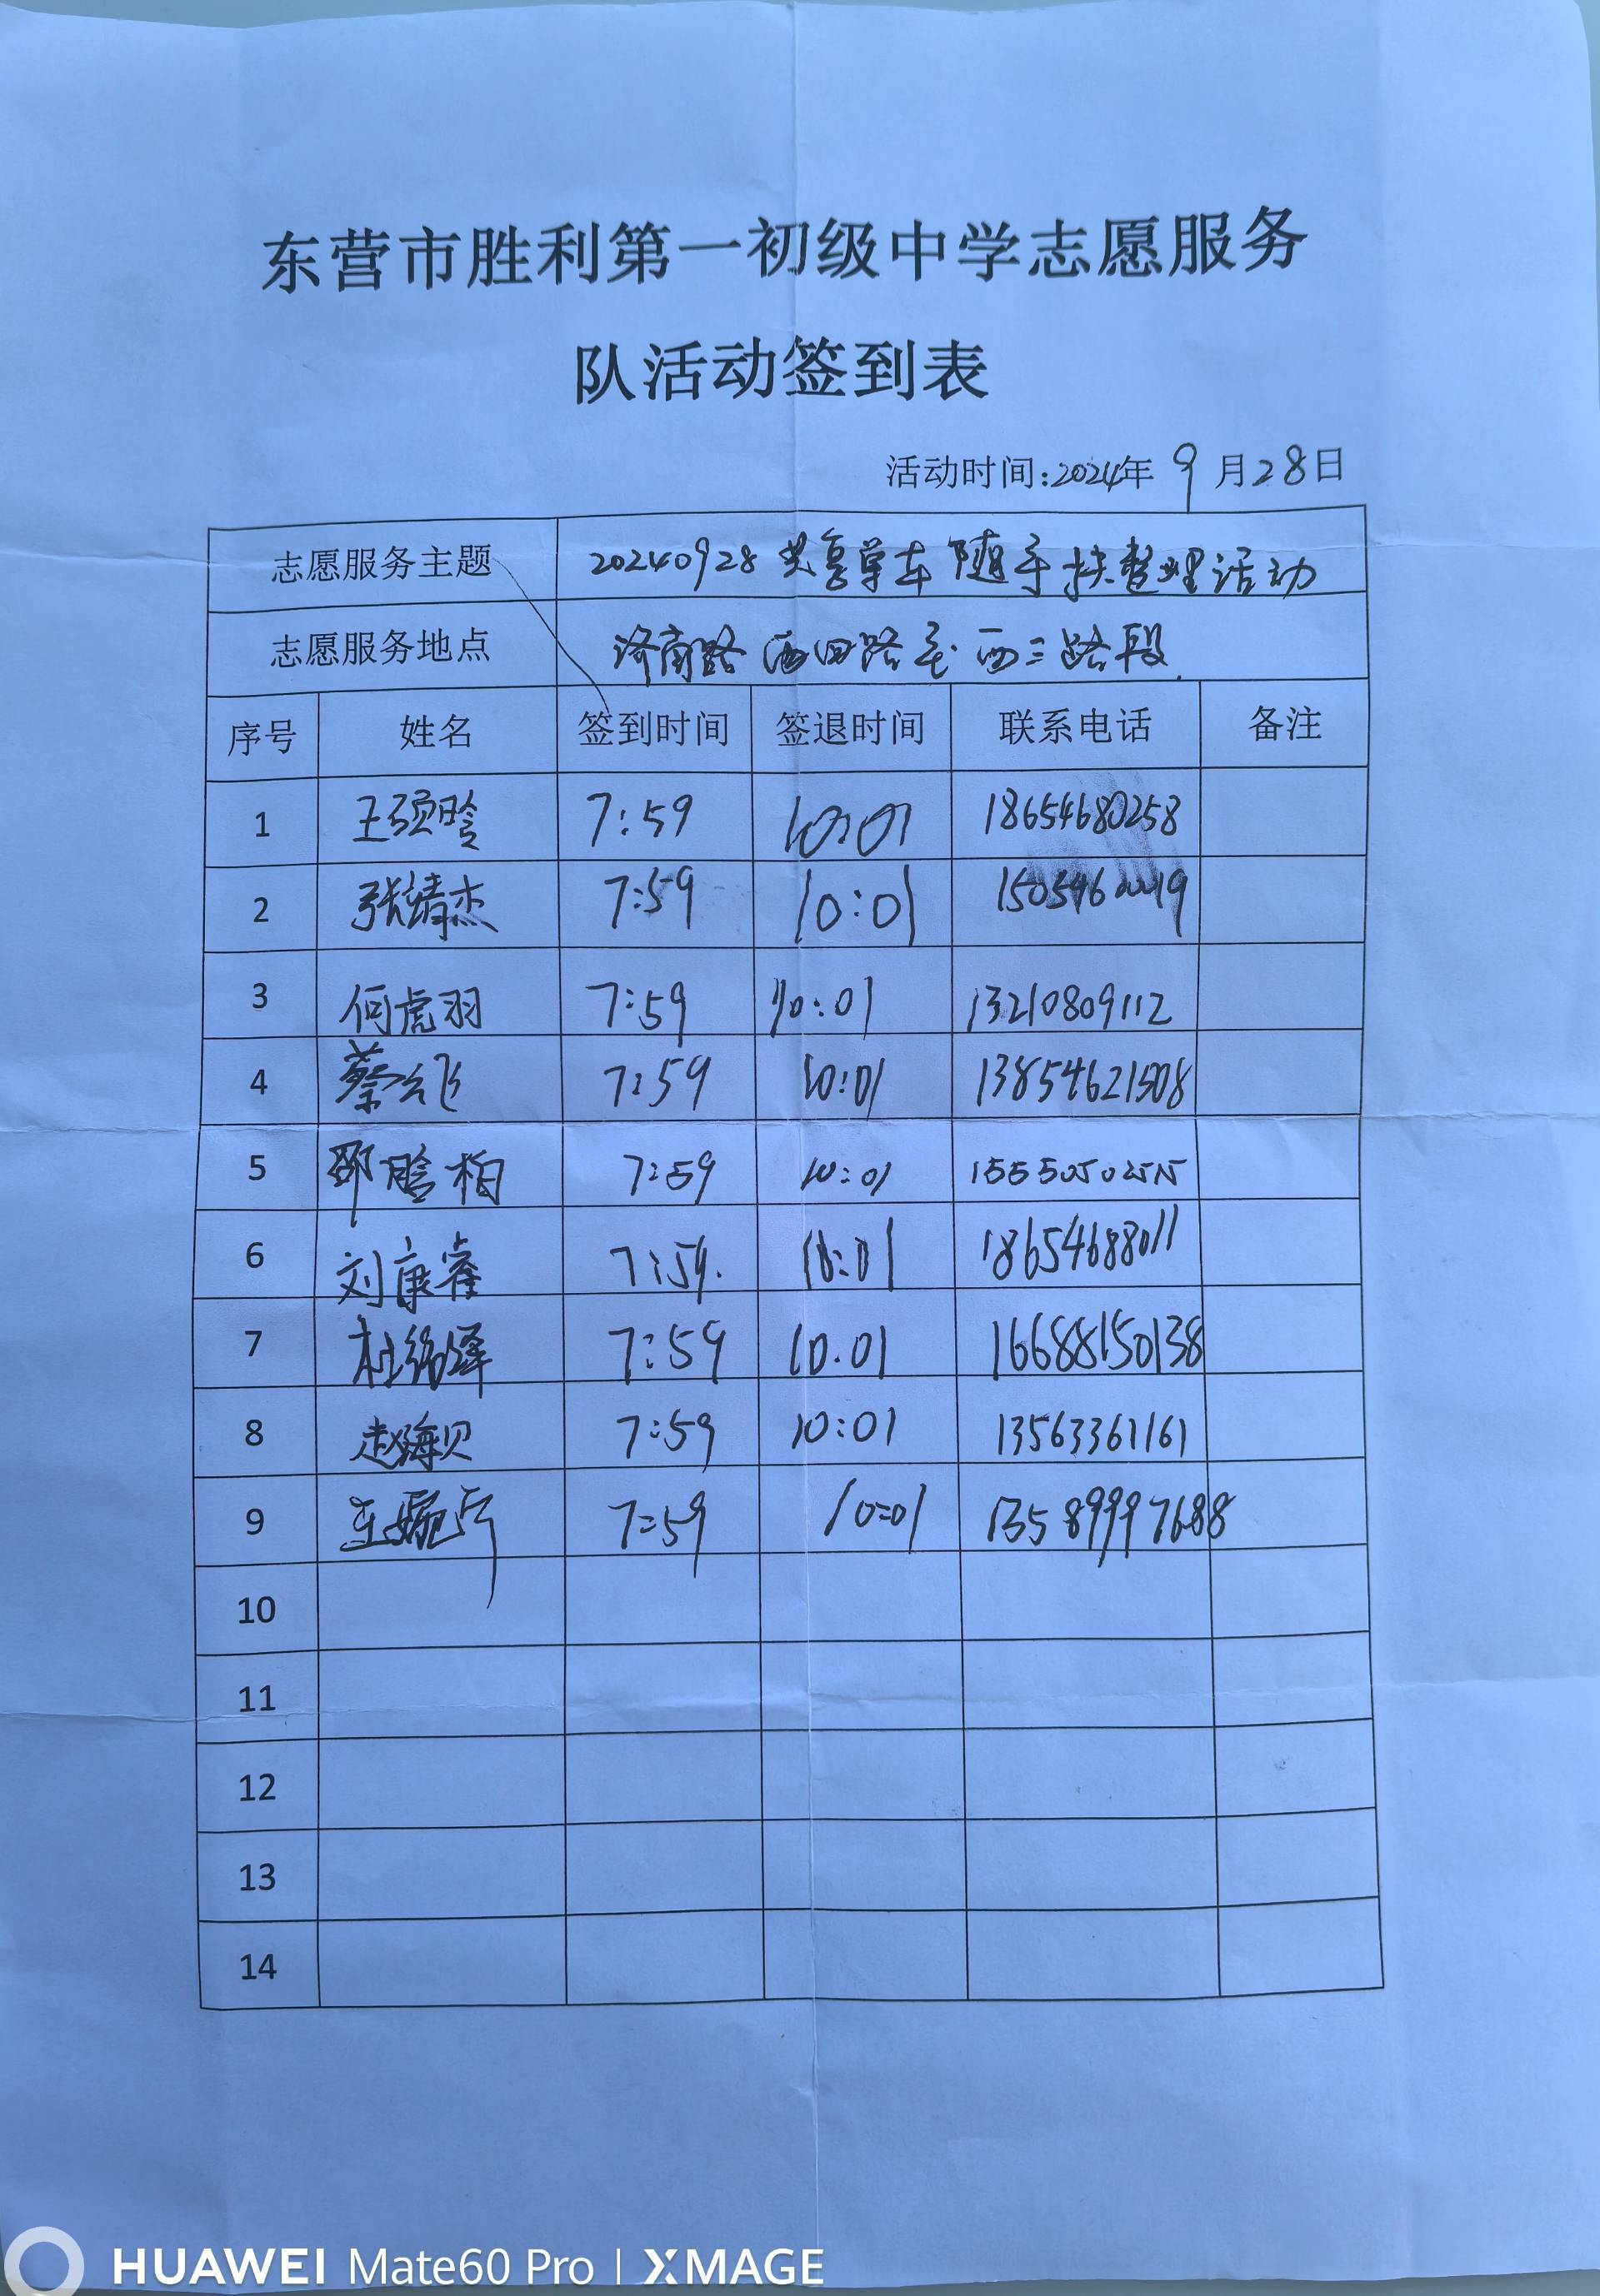 东营市胜利第一初级中学志愿服务
队活动签到表
活动时间:2024年 9 月28日
志愿服务主题 20240928 共享单车随手扶整理活动
志愿服务地点 济南路西四路至西三路段
序号 姓名 签到时间 签退时间 联系电话 备注
1 王硕晗 7:59 10:01 18654680258
2 张靖杰 7:59 10:01
3 何虎羽 7:59 10:01 13210809112
4 蔡云飞 7:59 10:01 13854621508
5 邵晗柏 7:59 10:01 15550502515
6 刘康睿 7:59. 10:01 18654688011
7 7:59 10.01 16688150138
8 赵海贝 7:59 10:01 13563361161
9 7:59 10:01 13589997688
10
11
12
13
14
HUAWEI Mate60 Pro | XMAGE